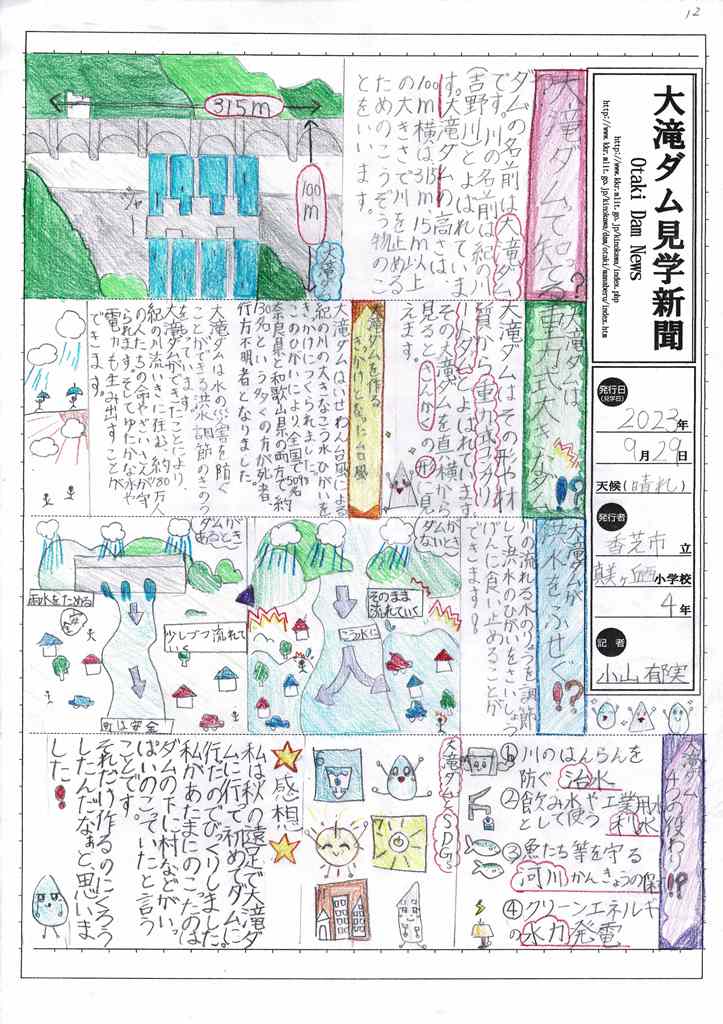 12
大滝ダム見学新聞
Otaki Dam News
http://www.kkr.mlit.go.jp/kinokawa/index.php
http://www.kkr.mlit.go.jp/kinokawa/dam/otaki/manaberu/index.htm
発行日
(見学日)
2023年
9月29日
天候(晴れ)
発行者
香芝市 立
真美ヶ丘西小学校
4年
記者
小山 郁実
大滝ダムで知ってる?
ダムの名前は大滝ダム
です。川の名前は紀の川
(吉野川)とよばれていま
す。大滝ダムの高さは
100m横は315m、15m以上
の大きさで川を止める
ためのこうぞう物のこ
とをいいます。
315m
100m
ジャー
大滝ダム
大滝ダムは
重力式大きなダム!?
大滝ダムはその形や材
質から重力式コンクリ
ートダムとよばれています
その大滝ダムを真横から
見ると さんかくの形 に見
えます。
大滝ダムを作る
きっかけとなった台風
大滝ダムはいせわん台風による
紀の川の大きなこう水ひがいを
きっかけにつくられました。
このひがいにより、全国で5098名
奈良県と和歌山県の両方で約
30名という多くの方が死者
行方不明者となりました。
大滝ダムは水の災害を防ぐ
ことができる洪水調節のきのう
を持っています。
大滝ダムができたことにより
紀の川流いきに住む約80万人
の人たちの命やざいさんが守
られます。そしてゆたかな水や
電力も生み出すことが
できます。
大滝ダムが
洪水をふせぐ!?
川の流れる水のりょうを調節
して洪水のひがいをさいしょう
げんに良い止めることが
できます?
ダムがないとき
そのまま
流れていく
こう水に
ダムがあるとき
雨水をためる
少しづつ流れて
いく
町は安全
大滝ダムの
4つの役わり!?
①川のはんらんを
防ぐ 治水
②飲み水や工業用水
として使う 利水
③魚たち等を守る
河川かんきょうの保
④グリーンエネルギ
の水力発電
大滝ダムとSDGs
感想
私は秋の遠足で大滝ダ
ムに行って初めてダムに
行たのでびっくりしました。
私があたまにのこったのは
ダムの下に村などがいっ
ぱいのこっていたと言う
ことです。
それだけ作るのにくろう
したんだなぁと思いま
した!